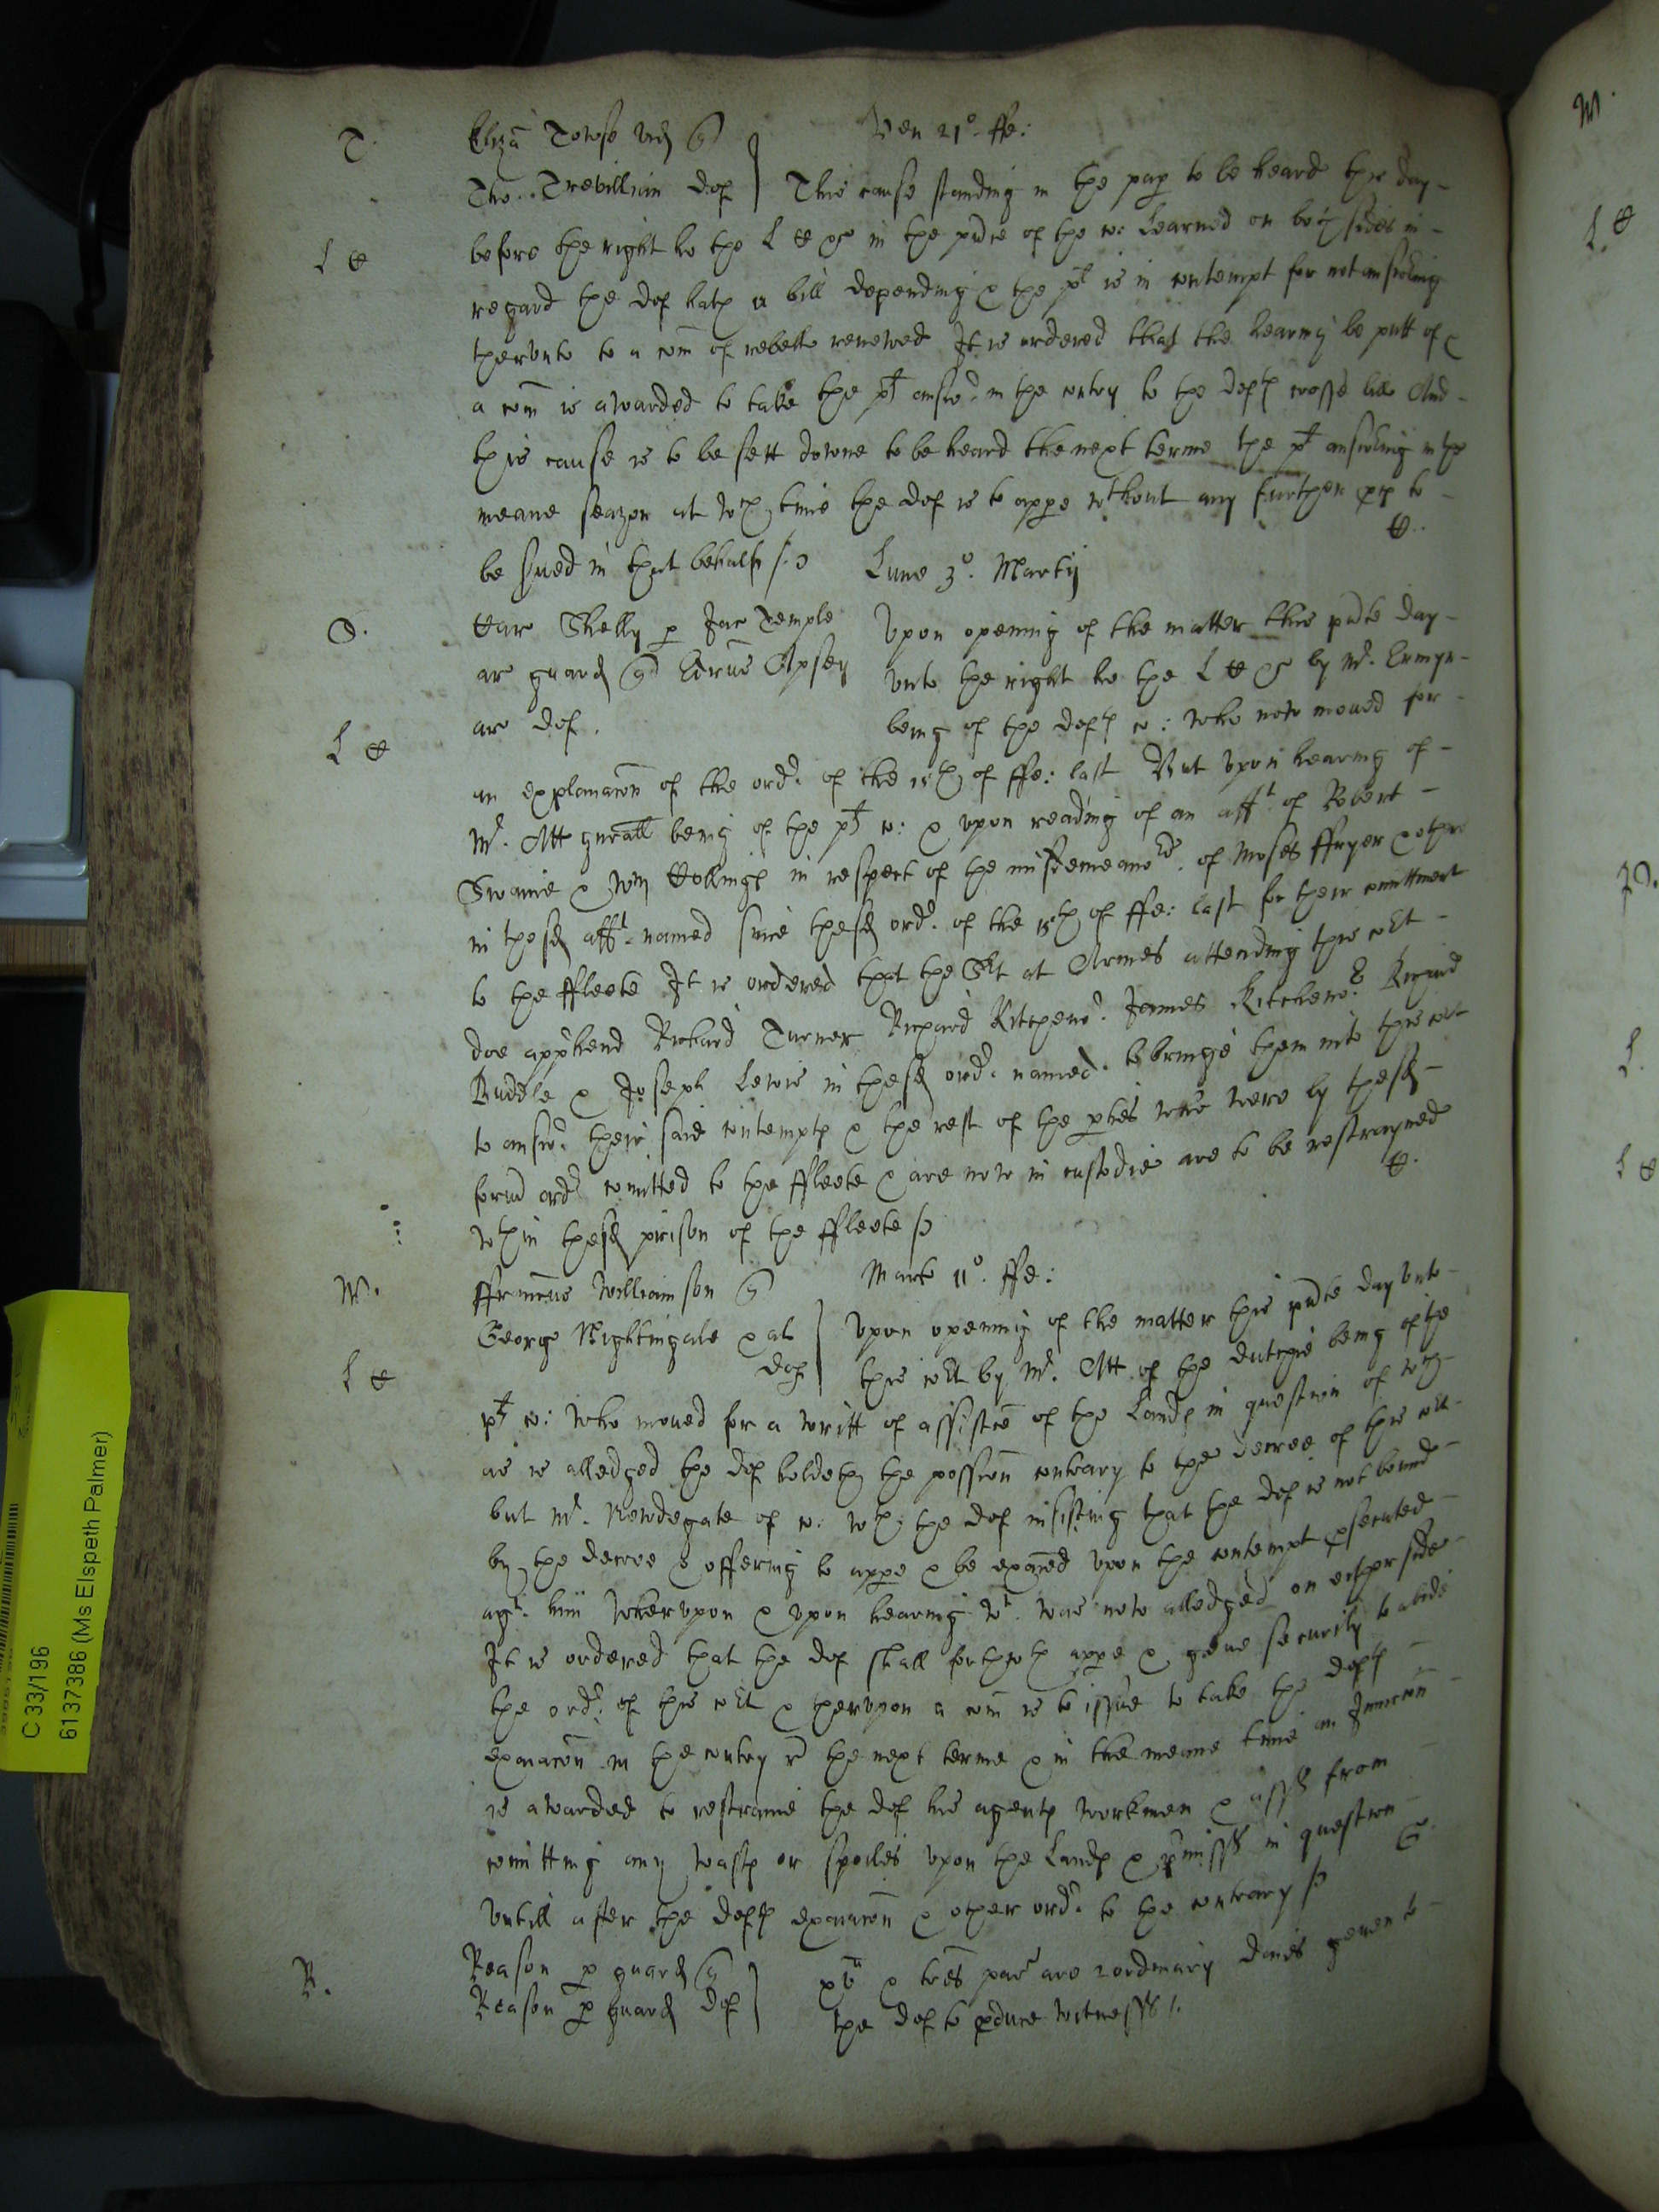 T. Eliza Towse vid q Ven 21o. ffe:
Tho: Trevillian def This cause standing in the pap to be heard this day
L H before the right ho the L H &c in the pnce of the co: Learned on both sides in
regard the def hath a bill depending & the plt is in contempt for not answering
therunto to a com of rebell renewed It is ordered that the hearing be putt of &
a com is awarded to take the plt answ: in the cuntry to the defts crosse bill And
this cause is to be sett downe to be heard the next terme the plt answering in the
meane season at wch time the def is to appe wthout any further pces to
be sued in that behalfe H.
Lune 3o. Martij
S. Har Shelly p Jac Temple Upon opening of the matter this pnte day
ar guard q Edrus Apsey unto the right ho the L H &c by Mr. Ermyn
L H ar def. being of the defts co: who now moued for
an explanacon of the ordr. of the 15th of ffe: last But upon hearing of
Mr. Att gnall being of the plt co: & upon reading of an afft of Robert
Swaine & Wm Hollings in respect of the misdemeanors. of Moses ffryer & others
in the sd afft. named since the sd ordr. of the 15th of ffe: last for their comittment
to the ffleete It is ordered that the Sit at Armes attending this cot
doe apphend Richard Turner Richard Kitchener James Kitchener Richard
Buddle & Joseph Lewis in the sd ordr. named. to bringe them into this cot
to answ: their said contempts & the rest of the pties who were by the sd
formr ordr comitted to the ffleete & are now in custodie are to be restrayned
wthin the sd prison of the ffleete H.
W. ffrancus Williamson q Marte 11o. ffe:
George Nightingale & al Upon opening of the matter this pnte day unto
L H def this cot by Mr. Att of the dutchie being of the
plt co: who moued for a writt of assistce of the Lands in question of wch
as is alledged the def holdeth the possion contrary to the decree of this cot
but Mr. Newdegate of co: wth the def insisting that the def is not bound
by the decree & offering to appe & be exaied upon the contempt psecuted
agt. him wherupon & upon hearing wt. was now alledged on either side
It is ordered that the def shall forthwth appe & geue security to abide
the ordr. of this cot & therupon a com is to issue to take the defts
exaiacon in the cuntry the next terme & in the meane time an Iniuncon
is awarded to restraine the def his agents workmen & asss from
comitting any wasts or spoiles upon the Lands & pmisss in question
Untill after the defts exaiacon & other ordr. to the contrary G.
R. Reason p guard q & lres par are 2 ordinary daies geuen to
Reason p guard def the def to pduce witnesss
C 33/196
6137386 (Ms Elspeth Palmer)